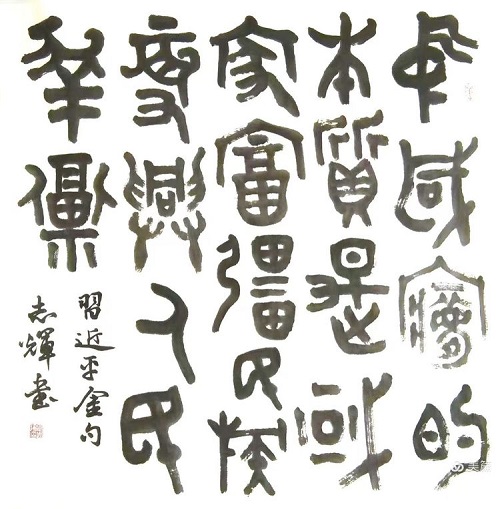 中國夢的
本質是國
家富彊民族
复興人民
幸福
習近平金句
志輝書